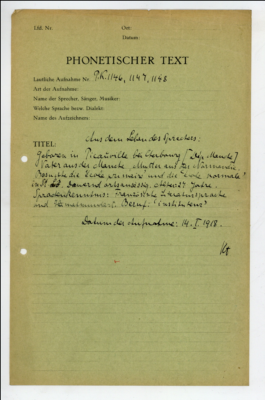 Lfd. Nr.
Ort:
Datum:
PHONETISCHER TEXT
Lautliche Aufnahme Nr. PK 1146, 1147, 1148
Art der Aufnahme:
Name der Sprecher, Sänger, Musiker:
Welche Sprache bezw. Dialekt:
Name des Aufzeichners:
TITEL:
Aus dem Leben des Sprechers:
Geboren in bei Cherbourg [Dép. Manche]
Vater aus der Manche, Mutter aus der Normandie.
Besuchte die Ecole primaire und die Ecole normale
in St. Lô. Dauernd ortsansässig, 25 Jahre.
Sprachkenntnisse: Französische Literatursprache
und Heimatmundart. Beruf: "Instituteur"
Datum der Aufnahme: 14. I 1918.